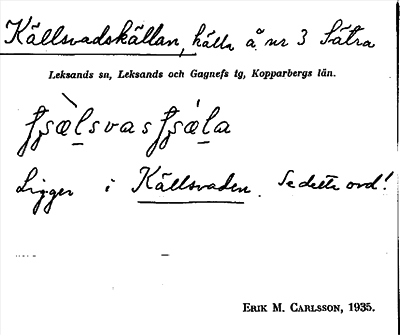 Källsvadskällan, källa å nr 3 Sätra
Leksands sn, Leksands och Gagnefs tg, Kopparbergs län.
Ligger i Källsvaden. Se detta ord!
ERIK M. CARLSSON, 1935.